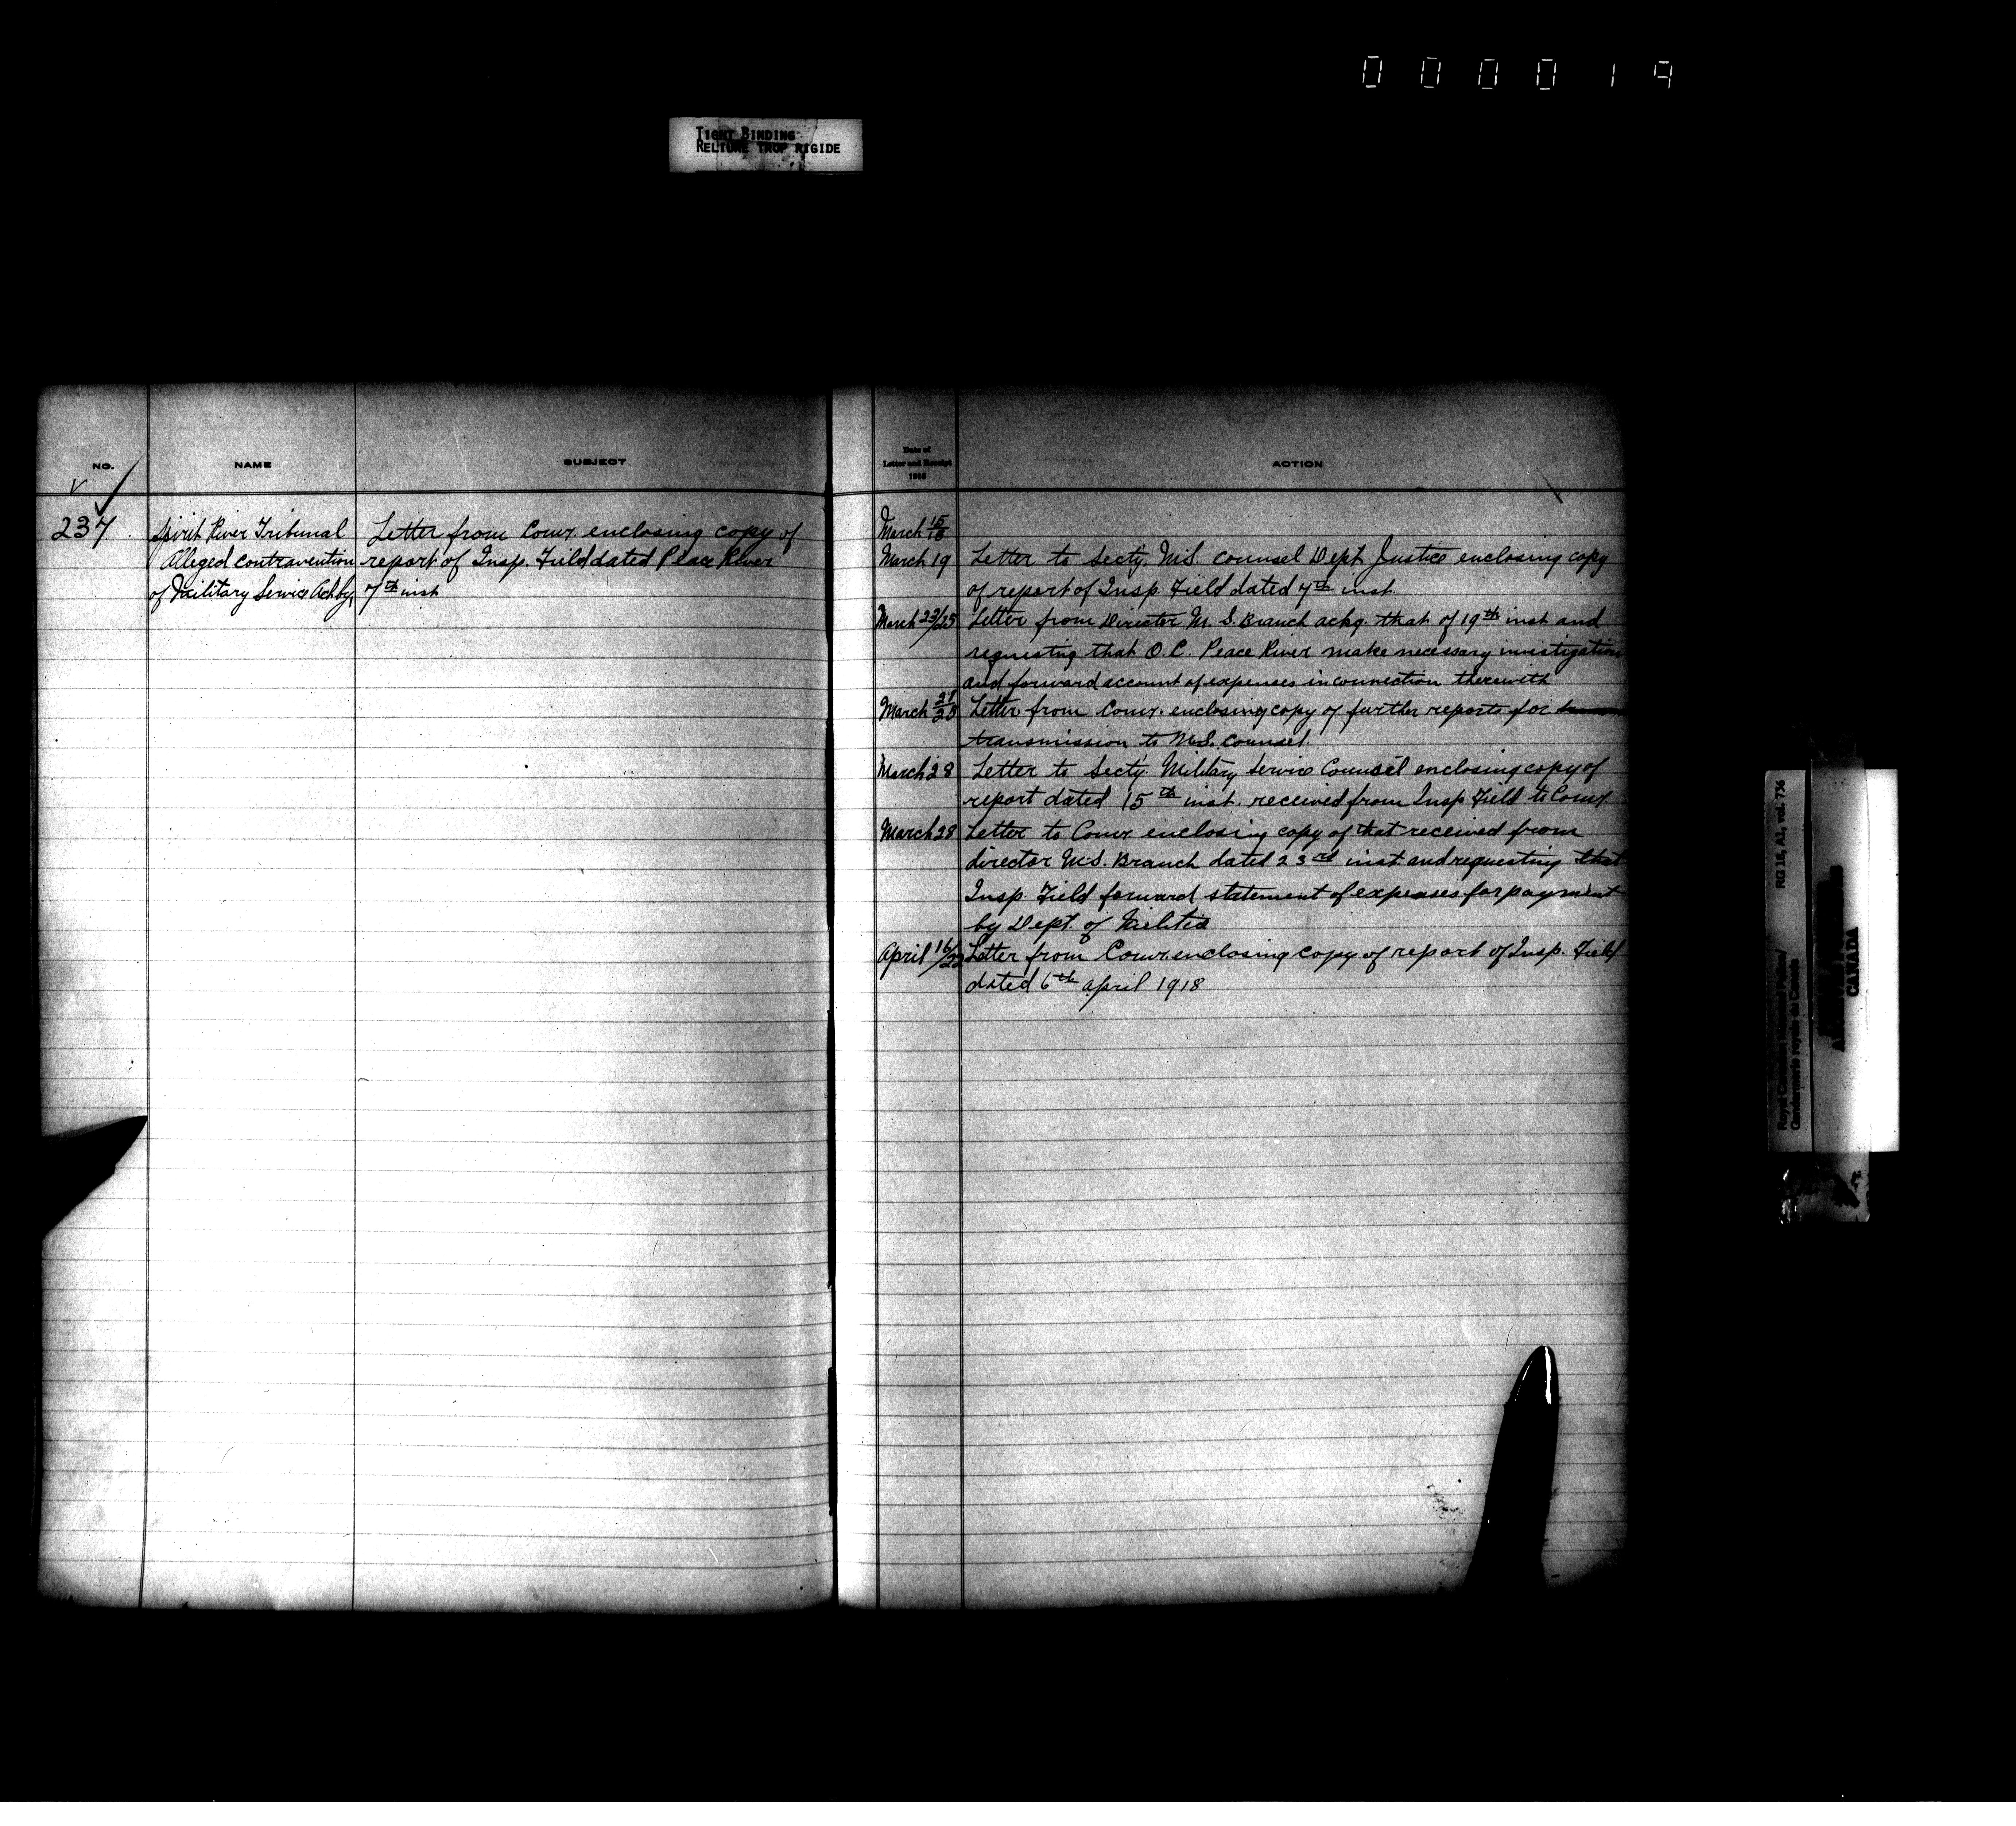 000019
TIGHT BINDING
RELIURE TROP RIGIDE
NO.
NAME
SUBJECT
Date of
Letter and Receipt
1918
ACTION
237
Spirit River Tribunal
Alleged contravention
of Military Service Act by
Letter from Comr. enclosing copy of
report of Insp. Field dated Peace River
7th inst
March 15/18
March 19 Letter to Secty. M.S. Counsel Dept Justice enclosing copy
of report of Insp. Field dated 7th inst.
March 23/25 Letter from Director M. S. Branch ackg. that of 19th inst and
requesting that O.C. Peace River make necessary investigation
and forward account of expenses in connection therewith
March 21/28 Letter from Comr. enclosing copy of further reports for
transmission to M.S. Counsel.
March 28 Letter to Secty. Military Service Counsel enclosing copy of
report dated 15th inst. received from Insp Field to Comr
March 28 Letter to Comr enclosing copy of that received from
director M.S. Branch dated 23rd inst and requesting that
Insp. Field forward statement of expenses for payment
by Dept. of Militia
April 16/22 Letter from Comr. enclosing copy of report of Insp. Field
dated 6th April 1918
RG 18, A1, vol. 736
Royal Canadian Mounted Police/
Gendarmerie royale du Canada
CANADA